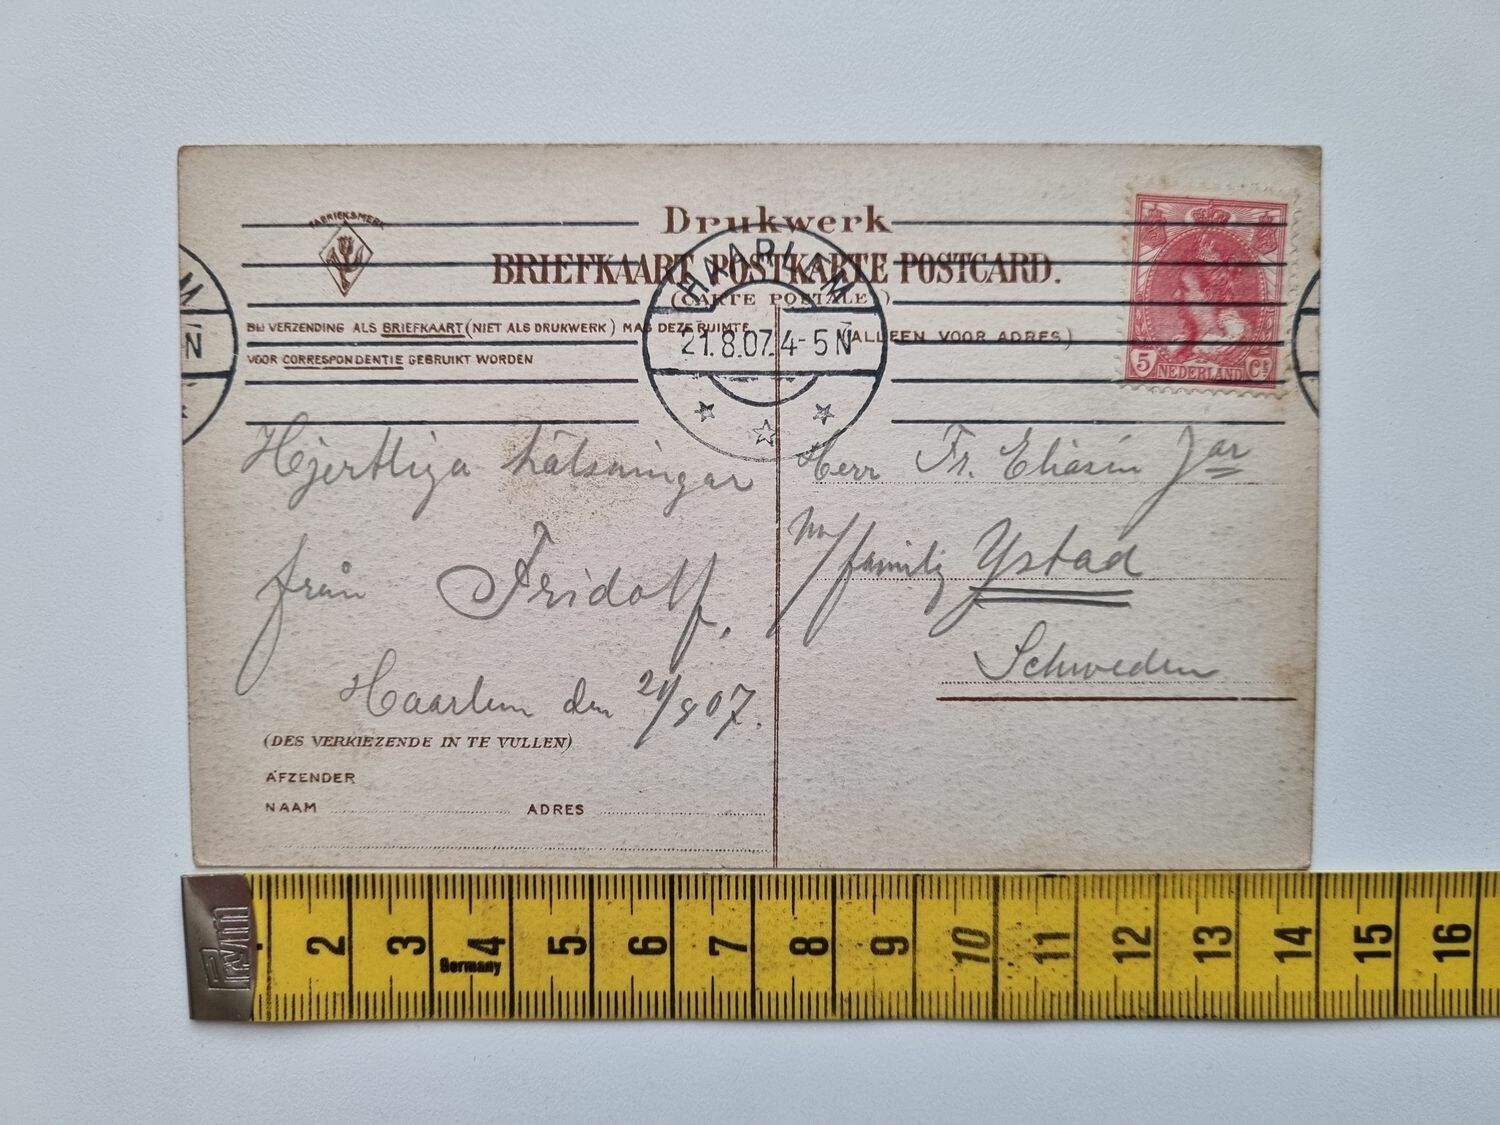 FABRIEKSMERK
Drukwerk
BRIEFKAART POSTKARTE POSTCARD.
(CARTE POSTALE)
HAARLEM
21.8.07.4-5 N
BIJ VERZENDING ALS BRIEFKAART (NIET ALS DRUKWERK) MAG DEZE RUIMTE
VOOR CORRESPONDENTIE GEBRUIKT WORDEN
(ALLEEN VOOR ADRES)
5 NEDERLAND Ct
M
N
Hjertliga hälsningar
från Fridolf.
Haarlem den 21/8 07.
Herr Fr. Eliasin Jar
m/familj Ystad
Schweden
(DES VERKIEZENDE IN TE VULLEN)
AFZENDER
NAAM ADRES
Prym
2 3 4 5 6 7 8 9 10 11 12 13 14 15 16
Germany